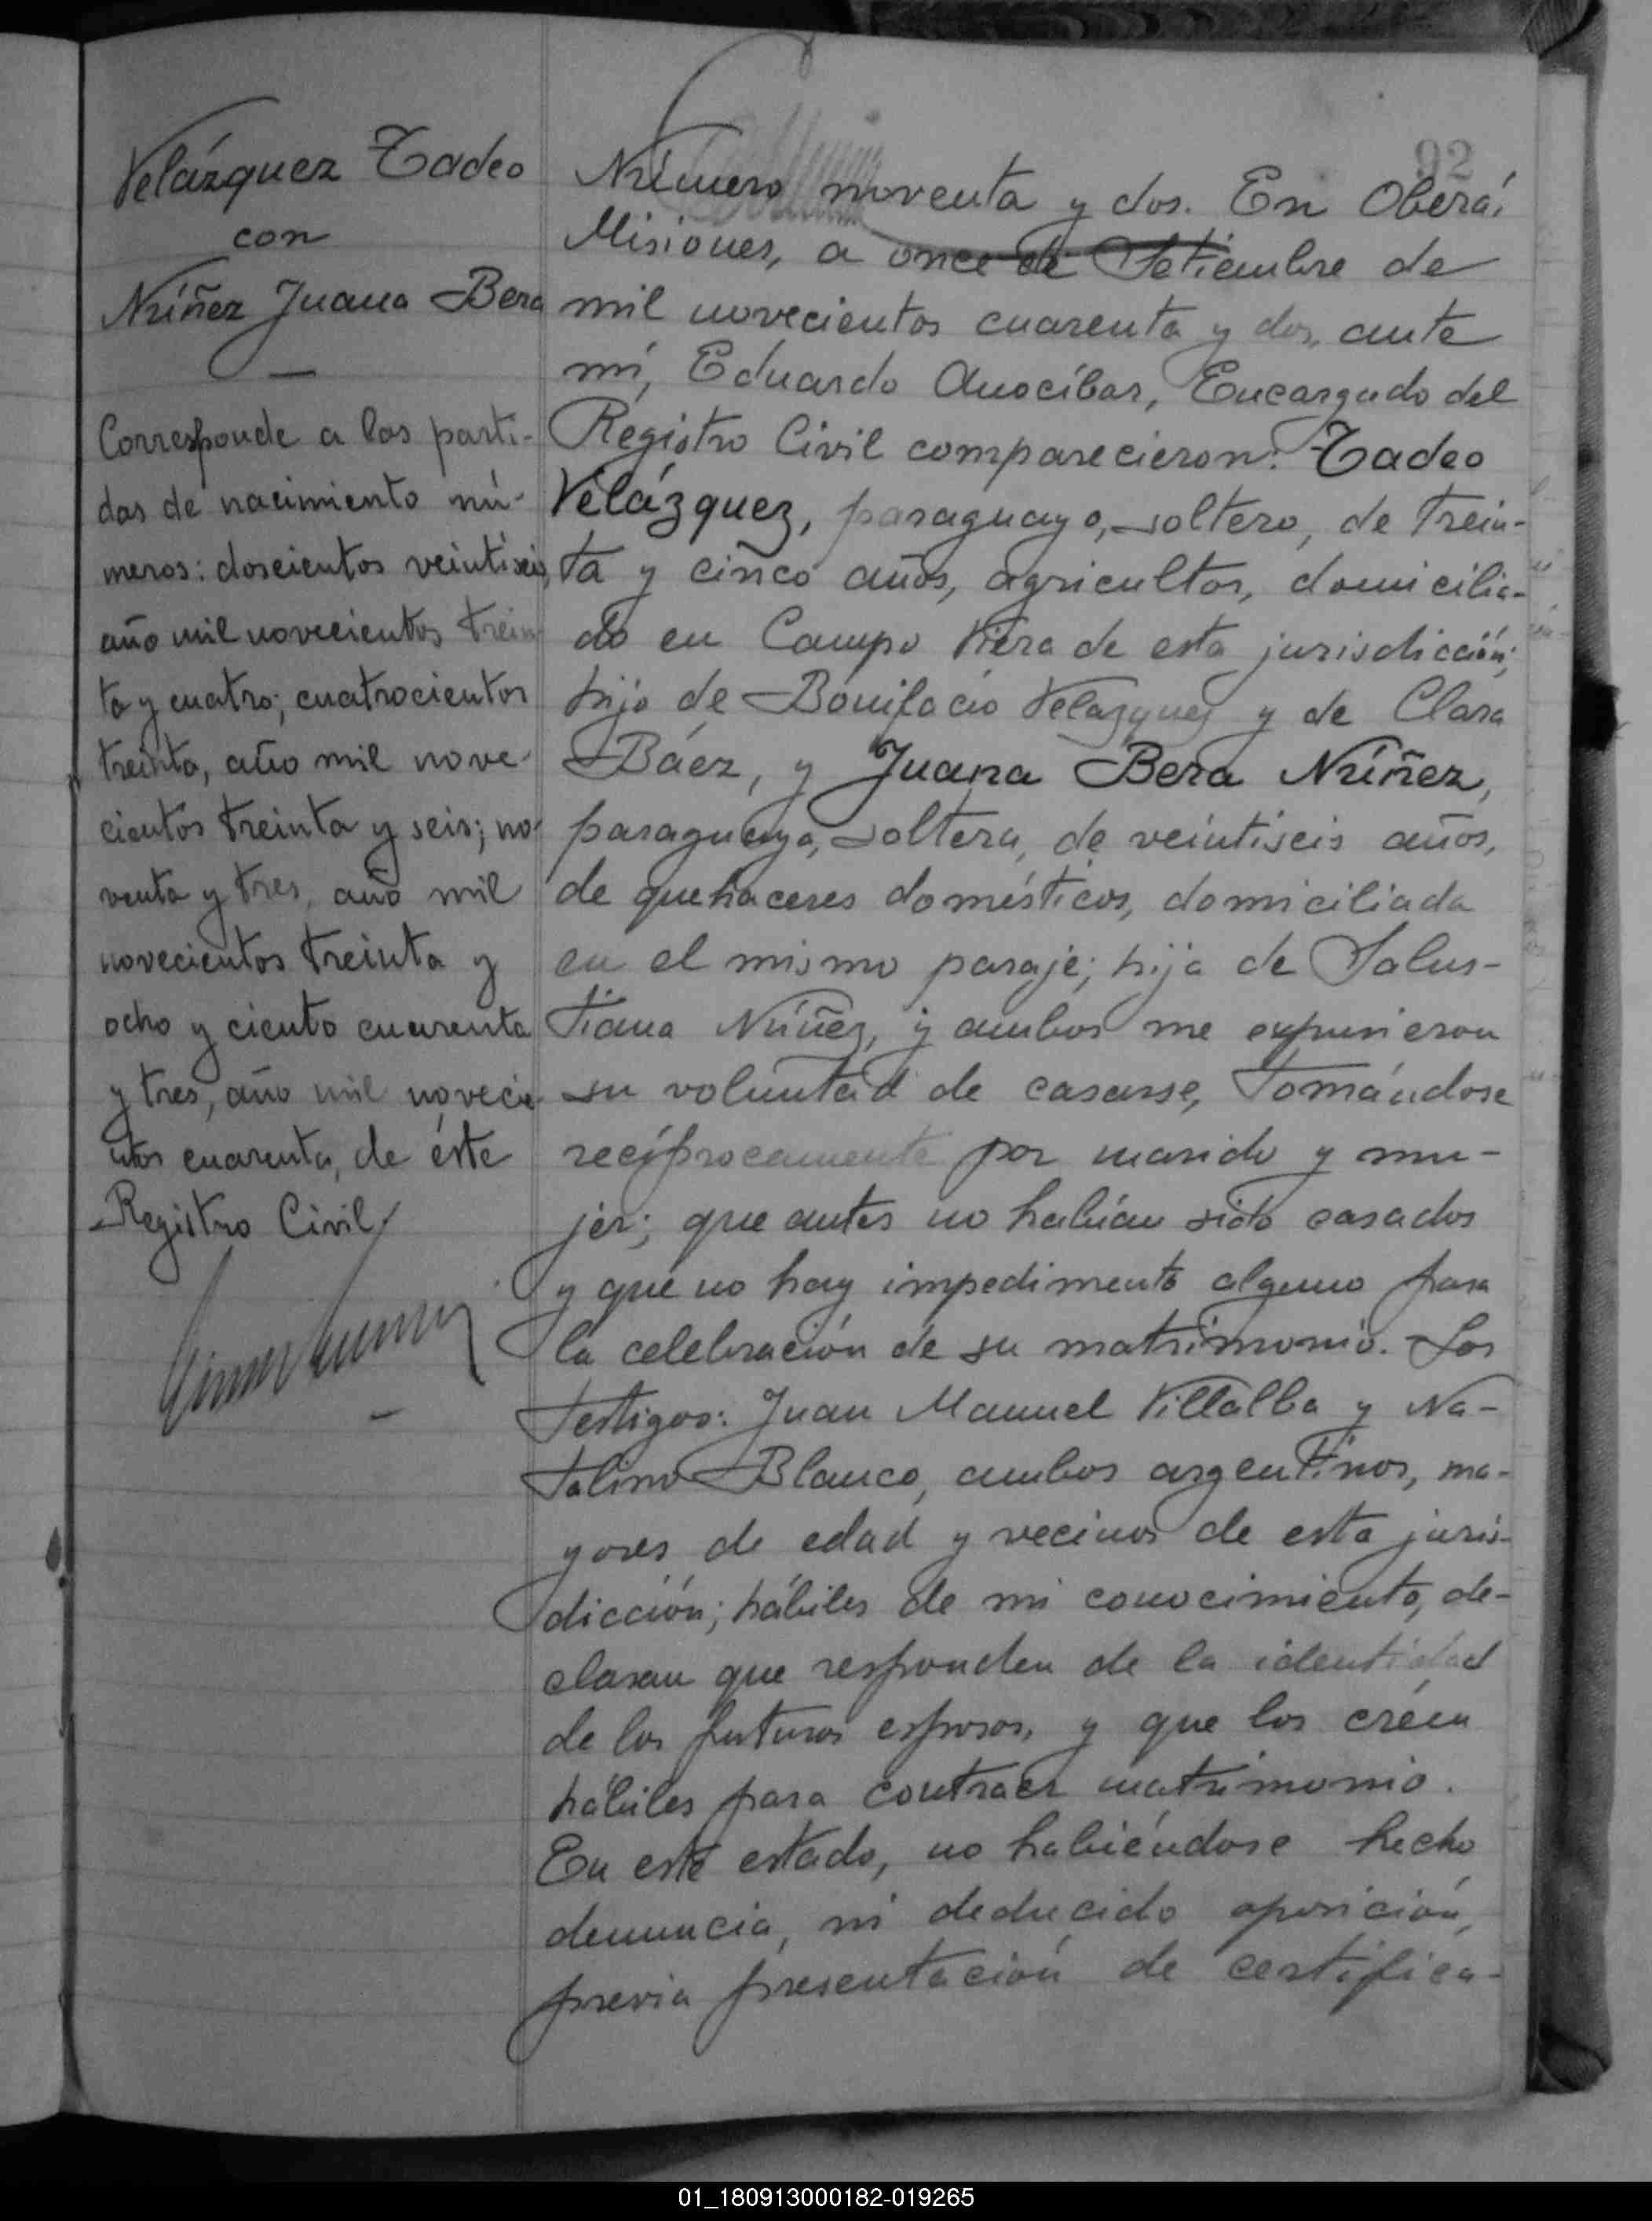 Velázquez Tadeo
con
Núñez Juana Bera
Corresponde a las parti-
das de nacimiento nú-
meros: doscientos veintiseis,
año mil novecientos trein
ta y cuatro; cuatrocientos
treinta, año mil nove-
cientos treinta y seis; no-
venta y tres, año mil
novecientos treinta y
ocho y ciento cuarenta
y tres, año mil novecie
ntos cuarenta, de éste
Registro Civil
92
Número noventa y dos. En Oberá,
Misiones, a once de Setiembre de
mil novecientos cuarenta y dos, ante
mí, Eduardo Anocíbar, Encargado del
Registro Civil comparecieron: Tadeo
Velázquez, paraguayo, soltero, de trein-
ta y cinco años, agricultor, domicilia-
do en Campo Viera de esta jurisdicción;
hijo de Bonifacio Velazquez y de Clara
Báez, y Juana Bera Núñez,
paraguaya, soltera, de veintiseis años,
de quehaceres domésticos, domiciliada
en el mismo paraje; hija de Salus-
tiana Núñez, y ambos me expusieron
su voluntad de casarse, tomándose
recíprocamente por marido y mu-
jer; que antes no habían sido casados
y que no hay impedimento alguno para
la celebración de su matrimonio. Los
testigos: Juan Manuel Villalba y Na-
talino Blanco, ambos argentinos, ma-
yores de edad y vecinos de esta juris-
dicción; hábiles de mi conocimiento, de-
claran que responden de la identidad
de los futuros esposos, y que los créen
hábiles para contraer matrimonio.
En este estado, no habiéndose hecho
denuncia, ni deducido oposición,
previa presentación de certifica-
01_180913000182-019265